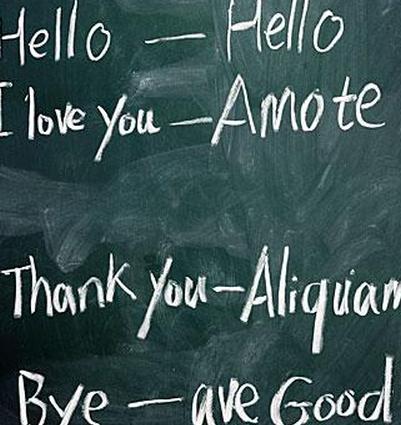 Hello — Hello
I love you — Amo te
Thank you – Aliquam
Bye — ave Good